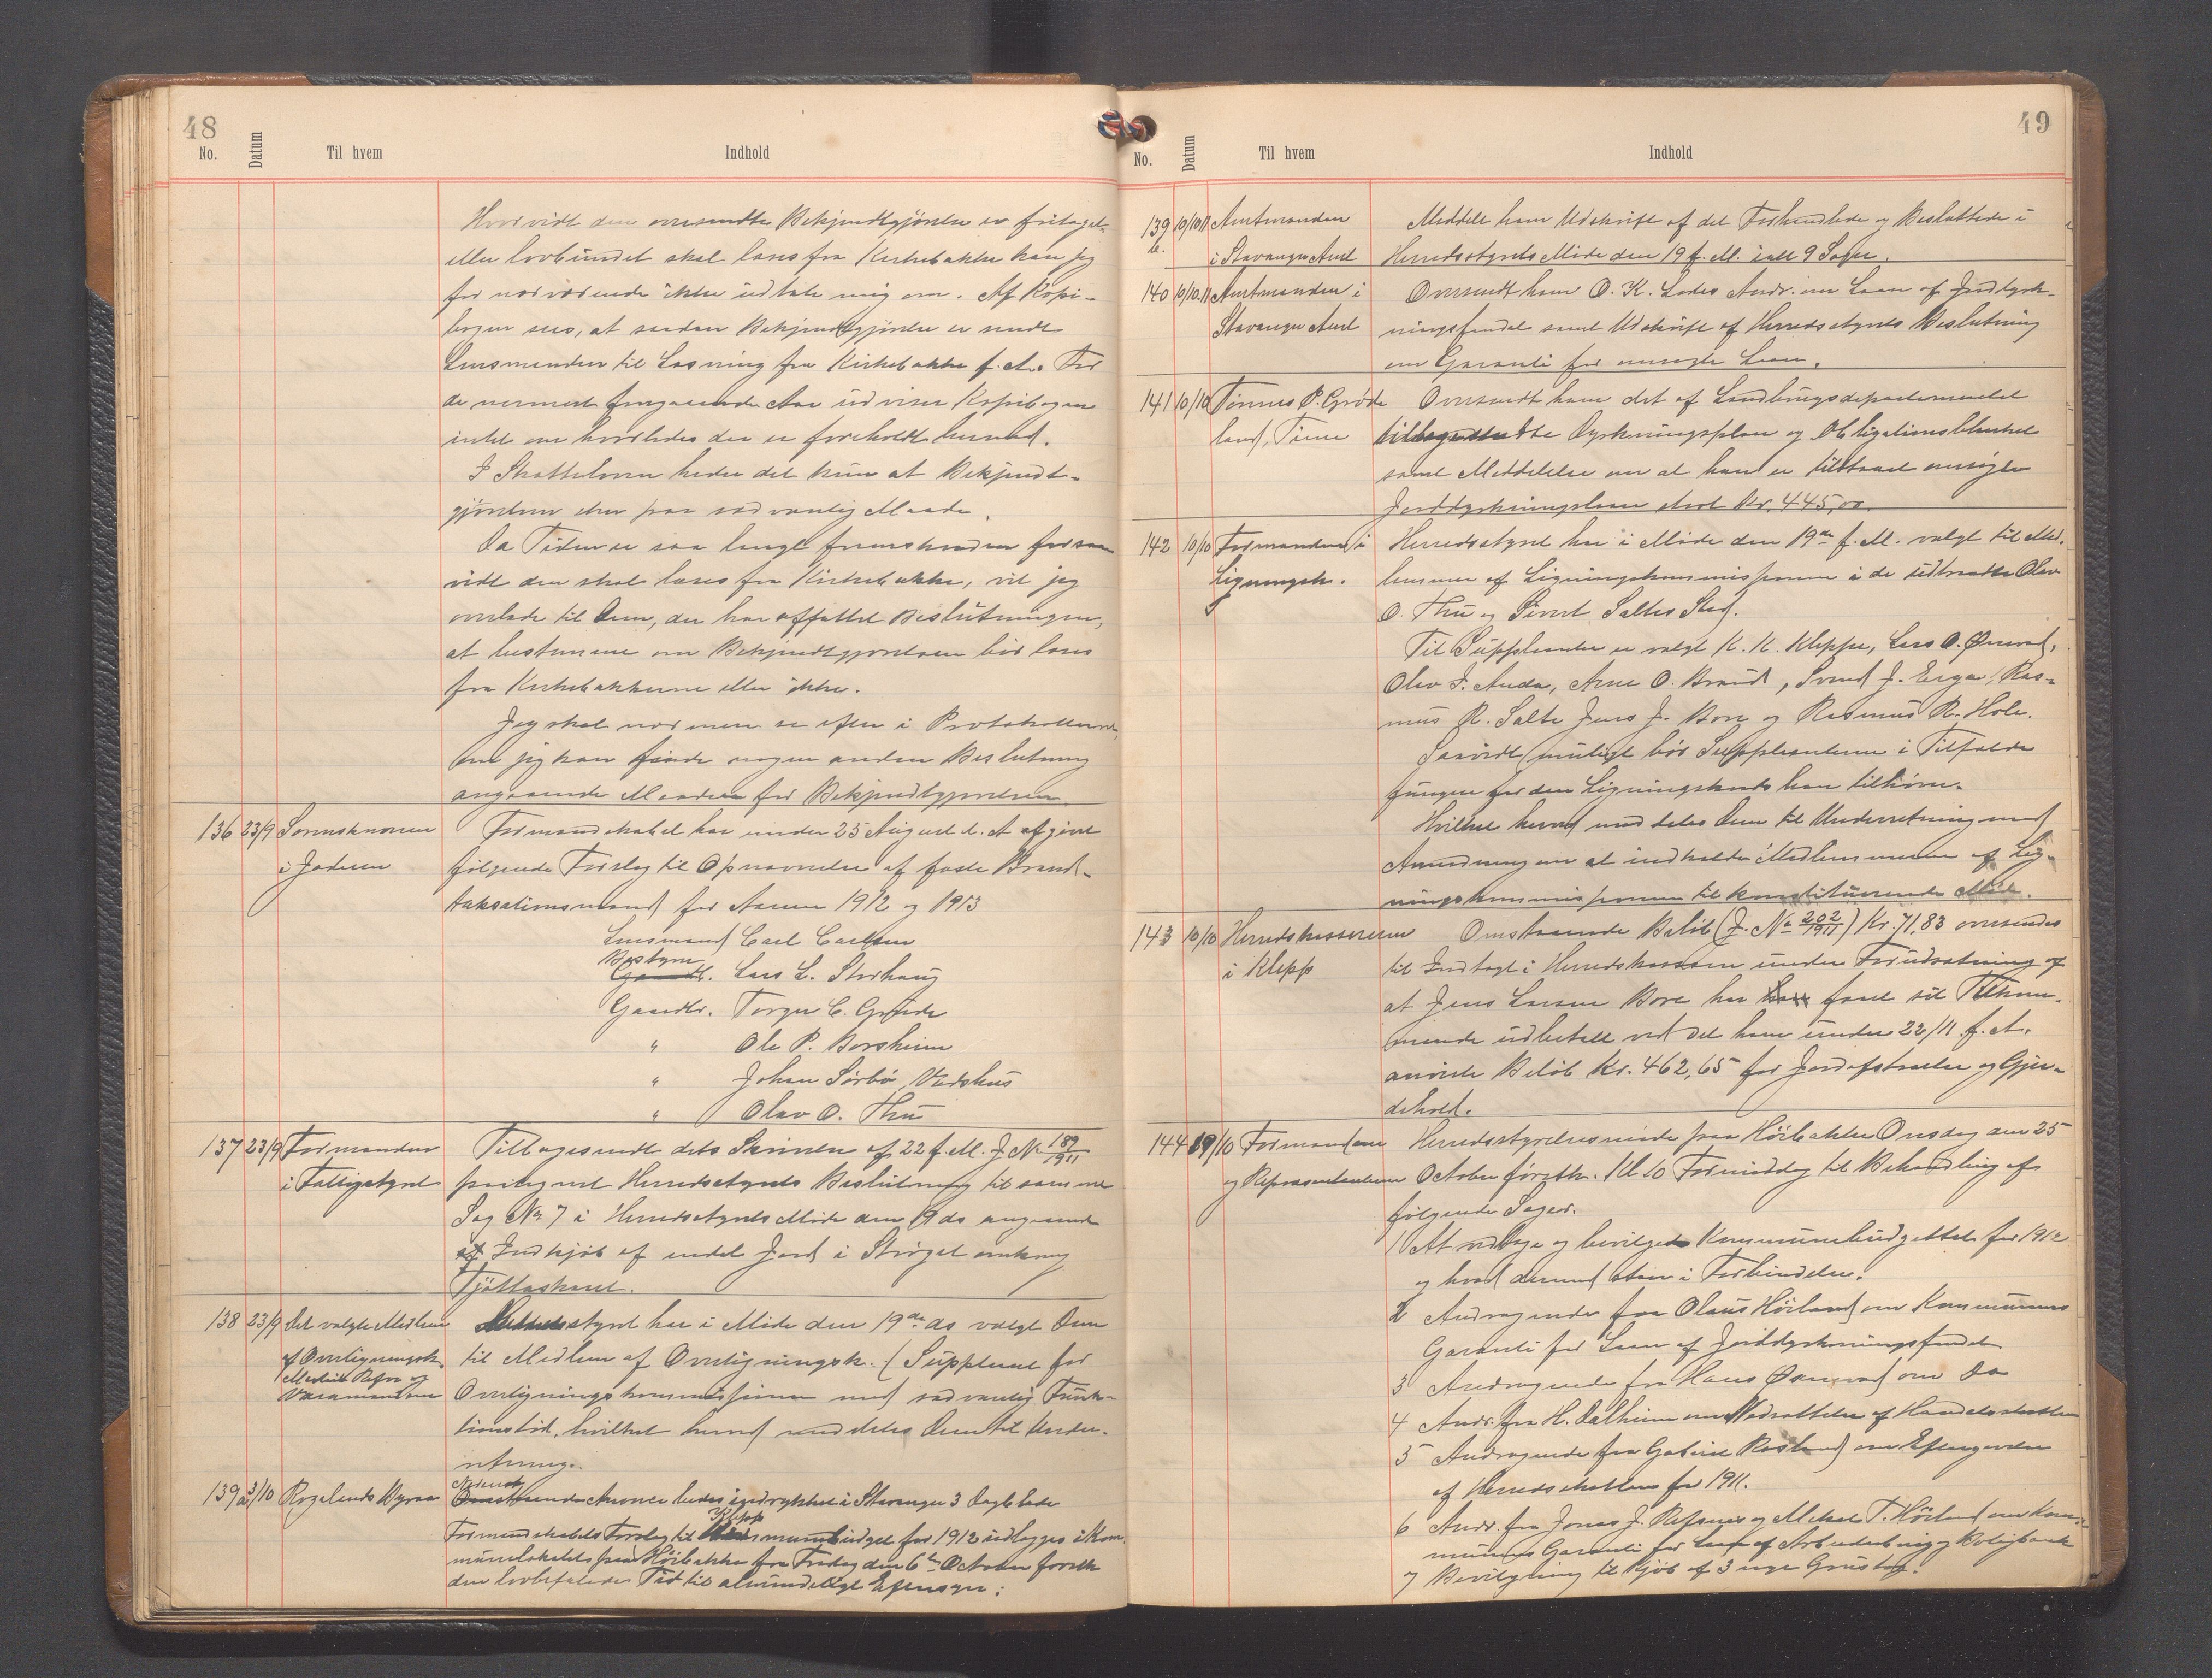 48
No. Datum Til hvem Indhold
Hvorvidt den oversendte Bekjendtgjörelse er fritaget
eller lovbundet skal læses fra Kirkebakke kan jeg
for nærværende ikke udtale mig om. Af Kopi-
bogen sees, at saadan Bekjendtgjörelse er sendt
Lensmanden til Læsning fra Kirkebakke f. A. For
de nærmest foregaaende Aar udviser Kopibogen
intet om hvorledes der er foreholdt hermed.
I Skatteloven heder det kun at Bekjendt-
gjörelsen sker paa sædvanlig Maade.
Da Tiden er saa langt fremskreden forsaa
vidt den skal læses fra Kirkebakke, vil jeg
overlade til Dem, der har affattet Beslutningen,
at bestemme om Bekjendtgjörelsen bör læses
fra Kirkebakkerne eller ikke.
Jeg skal nærmere se efter i Protokollerne,
om jeg kan finde nogen anden Beslutning
angaaende Maaden for Bekjendtgjörelsen.
136 23/9 Sorenskriveren Formandskabet har under 25 August d. A afgivet
i Jæderen följende Forslag til Opnævnelse af faste Brand-
taksationsmænd for Aarene 1912 og 1913
Lensmand Carl Carlsen
Bestyrer
Gaardbr. Lars L. Storhaug
Gaardbr. Torger C. Grude
" Ole P. Borsheim
" Johan Sörbö, Vadshus
" Olav O. Thu
137 23/9 Formanden Tilbagesendt dets Skrivelse af 22 f. M. J. No 189/1911
i Fattigstyret paategnet Herredsstyrets Beslutning til samme
Sag No 7 i Herredsstyrets Möde den 19 ds angaaende
Indkjöb af endel Jord i Ströget omkring
Tjöttaskaret.
138 23/9 Det valgte Medlem styret har i Möde den 19de ds valgt Dem
af Overligningsk. til Medlem af Overligningsk. (Suppleant for
Overligningskommissionen med sædvanlig Funk-
Varamændene
tionstid, hvilket herved meddeles Dem til Under-
retning.
139 a 3/10 Rogalands Avis Nedenst.
Annonce bedes indrykket i Stavanger 3 Dagblade
Klepp
Formandskabets Forslag til budget for 1912 udlægges i Kom-
munelokalet paa Höibakke fra Fredag den 6te October förstk
den lovbefalede Tid til almindeligt Eftersyn.
49
No. Datum Til hvem Indhold
139 b. 10/10.11 Amtmanden Meddelt ham Udskrift af det Forhandlede og Besluttede i
i Stavanger Amt Herredsstyrets Möde den 19 f. M. ialt 9 Sager.
140 10/10.11 Amtmanden i Oversendt ham O. K. Lodes Andr. om Laan af Jorddyrk-
Stavanger Amt ningsfondet samt Udskrift af Herredsstyrets Beslutning
om Garanti for ansøgte Laan.
141 10/10 Tönnes P. Gröde Oversendt ham det af Landbrugsdepartementet
land, Time Dyrkningsplan og Obligationsblanket
samt Meddelelse om at han er tilstaaet ansögte
Jorddyrkningslaan stort Kr. 445,00.
142 10/10 Formanden i Herredsstyret har i Möde den 19de f. M. valgt til Med-
Ligningsk. lemmer af Ligningskommissionen i de udtraadte Olav
O. Thu og Sivert Saltes Sted.
Til Suppleanter er valgt K. K. Kleppe, Lars O. Öxnevad,
Olav J. Anda, Arne O. Braut, Svend J. Erga, Ras-
mus R. Salte, Jens J. Bore og Rasmus R. Hole.
Saavidt muligt bör Suppleanterne i Tilfælde
fungere for den Ligningskreds han tilhörer.
Hvilket herved meddeles Dem til Underretning med
Anmodning om at indkalde Medlemmerne af Lig-
ningskommissionen til konstituerende Möde.
143 10/10 Herredskassereren Omstaaende Belöb (J. No 202/1911) Kr. 71,83 oversendes
i Klepp til Indtægt i Herredskassen under Forudsætning af
at Jens Larsen Bore har faaet sit Tilkom-
mende udbetalt ved det ham under 22/11 f. A.
anviste Belöb Kr. 462,65 for Jordafstaaelse og Gjer-
dehold.
144 19/10 Formændene Herredsstyrelsesmöde paa Höibakke Onsdag den 25
og Repræsentanterne October förstk. Kl 10 Formiddag til Behandling af
fölgende Sager.
1 At vedtage og bevilge Kommunebudgettet for 1912
og hvad dermed staar i Forbindelse.
2 Andragende fra Olaus Höiland om Kommunens
Garanti for Laan af Jorddyrkningsfondet
3 Andragende fra Hans Öxnevad om Do
4 Andr. fra H. Dalheim om Nedsættelse af Handelsskatten
5 Andragende fra Gabriel Rosland om Eftergivelse
af Herredsskatten for 1911.
6 Andr. fra Jonas J. Refsnes og Mikal T. Höiland om Kom-
munens Garanti for Laan af Arbeiderbrug og Boligbank
7 Bevilgning til Kjöb af 3 nye Grustag.